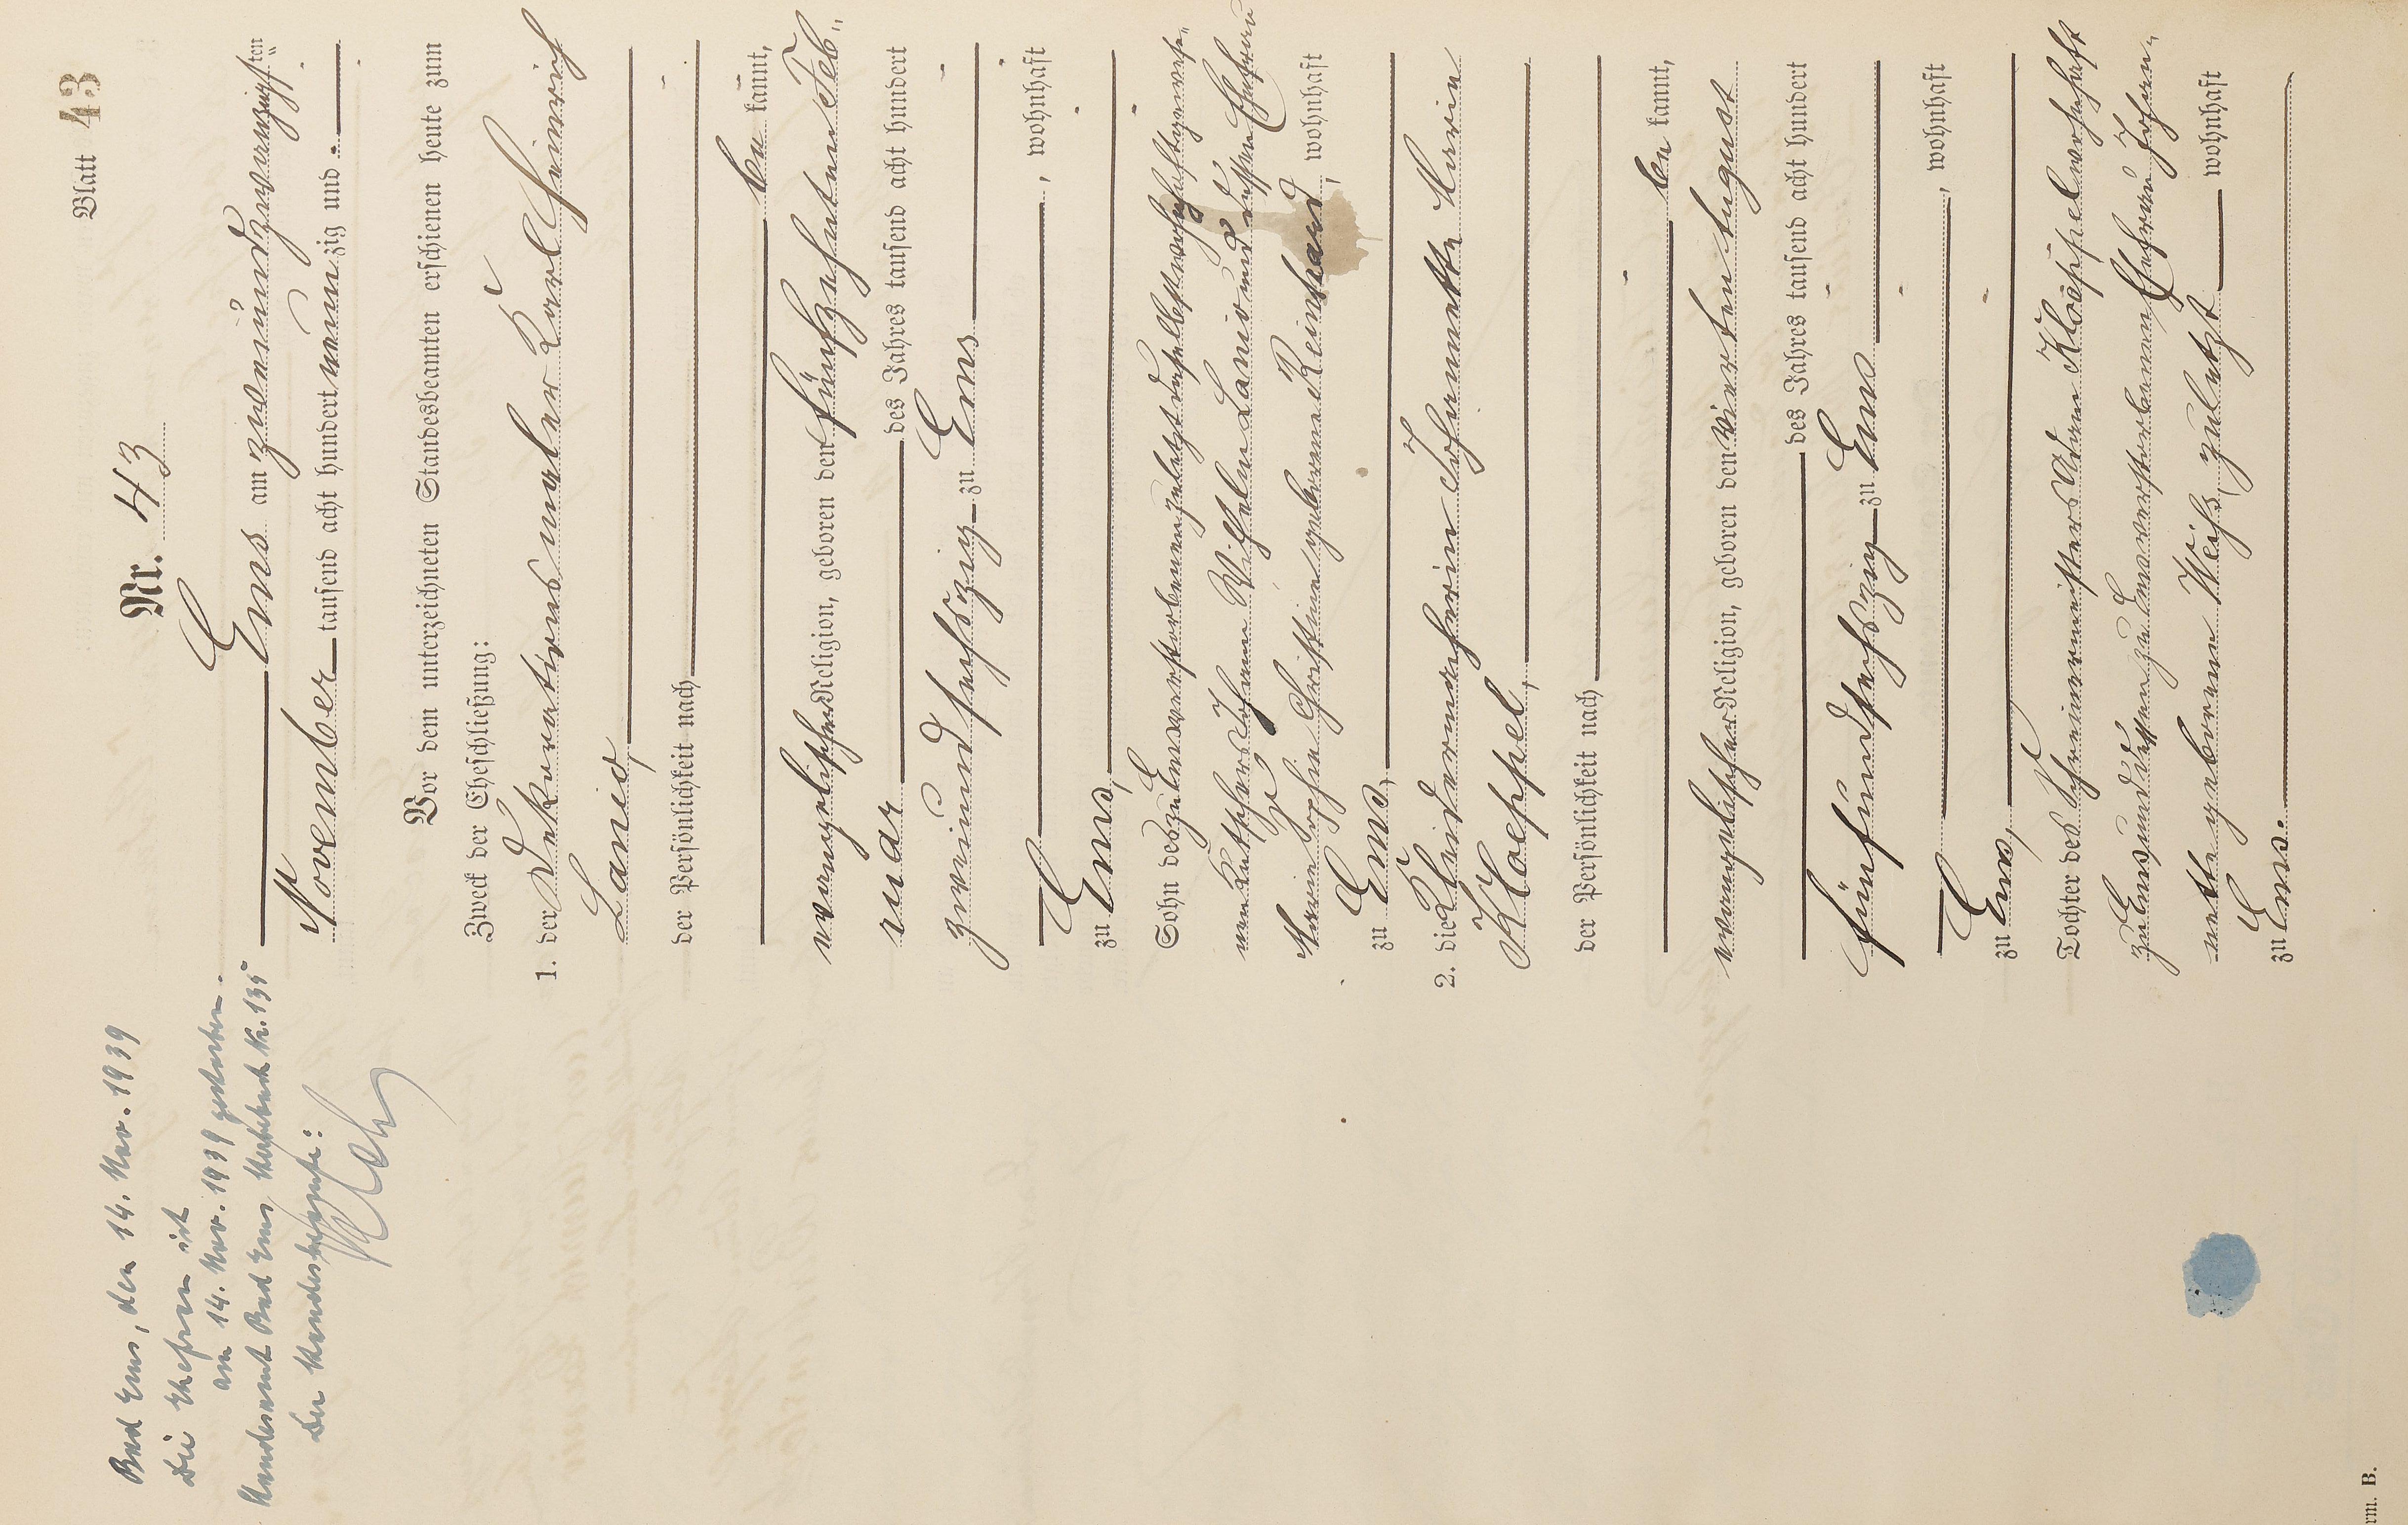 Blatt 43
Nr. 43
Ems am zweiundzwanzigsten
November tausend acht hundert neunzig und
Vor dem unterzeichneten Standesbeamten erschienen heute zum
Zweck der Eheschließung:
1. der Dekorationsmaler Karl Heinrich
Lanio,
der Persönlichkeit nach
be kannt,
evangelischer Religion, geboren den fünfzehnten Feb-
ruar des Jahres tausend acht hundert
zweiundsechszig zu Ems
, wohnhaft
zu Ems,
Sohn des zu Ems verstorbenen zuletzt daselbst wohnhaft gewese-
nen Kutschers Johann Wilhelm Lanio und dessen Ehefrau
Marie Sophie Christine geborene Reinhard, wohnhaft
zu Ems,
2. die Kleidermacherin Johannette Marie
Kloeppel,
der Persönlichkeit nach
be kannt,
evangelischer Religion, geboren den vierten August
des Jahres tausend acht hundert
fünfundsechszig zu Ems
, wohnhaft
zu Ems,
Tochter des Schreinermeisters Adam Klöppel wohnhaft
zu Ems und dessen zu Ems verstorbenen Ehefrau Johan-
nette geborenen Weis, zuletzt wohnhaft
zu Ems.
Bad Ems, den 14. Nov. 1939
Die Ehefrau ist
am 14. Nov. 1939 gestorben.
Standesamt Bad Ems Sterbebuch Nr. 135
Der Standesbeamte:
rm. B.